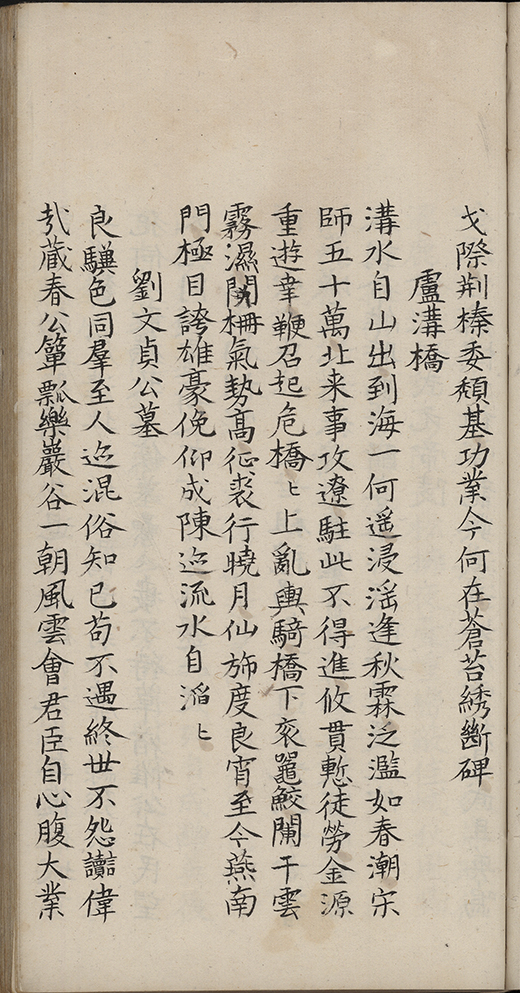 戈際荆榛委頽基功業今何在蒼苔綉斷碑
盧溝橋
溝水自山出到海一何遥浸淫逢秋霖泛濫如春潮宋
師五十萬北来事攻遼駐此不得進攸貫慙徒勞金源
重遊幸鞭召起危橋〻上亂輿騎橋下衮鼉鮫闌干雲
霧濕関柵氣勢髙征裘行曉月仙斾度良宵至今燕南
門極目誇雄豪俛仰成陳迹流水自滔〻
劉文貞公墓
良驥色同羣至人迹混俗知已苟不遇終世不怨讟偉
㢤蔵春公簞瓢樂巖谷一朝風雲會君臣自心腹大業